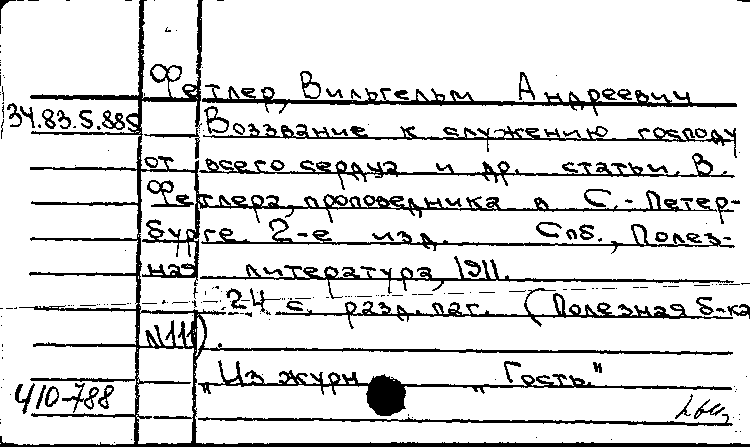 Фетлер, Вильгельм Андреевич
34.83.5.885 Воззвание к служению господу
от всего сердца и др. статьи. В.
Фетлера, проповедника в С.-Петер-
бурге. 2-е изд. Спб., Полез-
ная литература, 1911.
24 с. разд. паг. (Полезная б-ка
N111).
„Из журн „Гость."
410-788